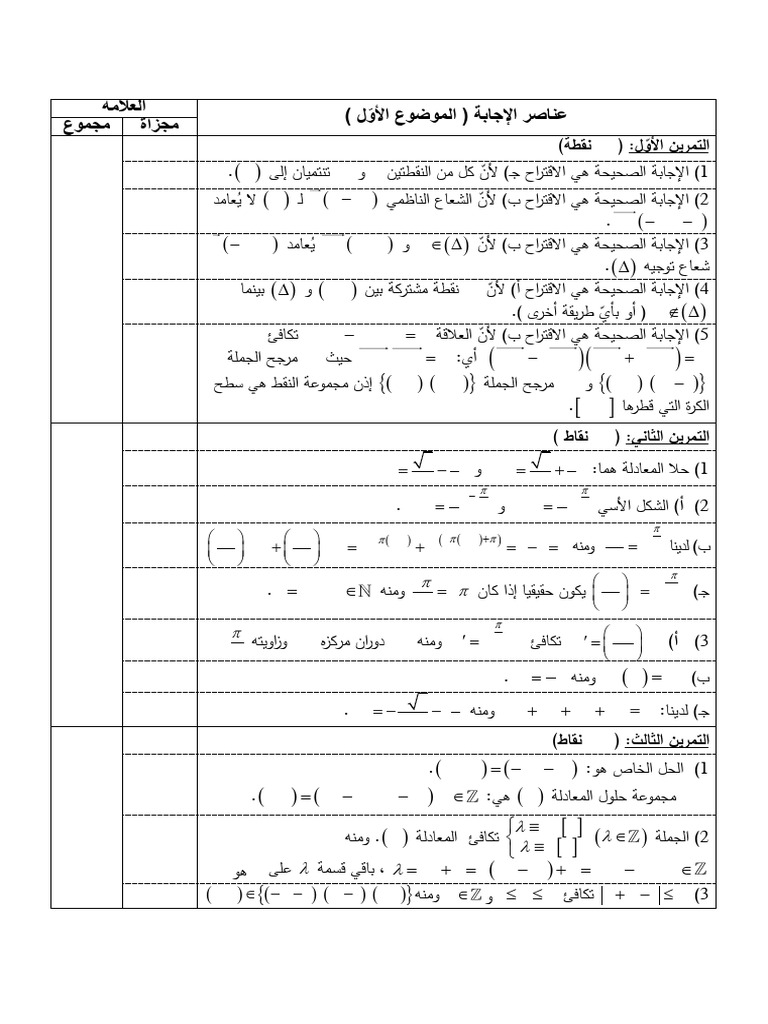 العلامة
عناصر الإجابة ( الموضوع الأوّل )
مجموع مجزأة
التمرين الأوّل: ( نقطة)
1) الإجابة الصحيحة هي الاقتراح جـ) لأنّ كل من النقطتين و تنتميان إلى ( ).
2) الإجابة الصحيحة هي الاقتراح ب) لأنّ الشعاع الناظمي ( − ) لـ ( ) لا يُعامد
( − − ) .
3) الإجابة الصحيحة هي الاقتراح ب) لأنّ ∈(Δ) و ( ) يُعامد ( − )
شعاع توجيه (Δ).
4) الإجابة الصحيحة هي الاقتراح أ) لأنّ نقطة مشتركة بين ( ) و (Δ) بينما
∉(Δ) ( أو بأيّ طريقة أخرى ).
5) الإجابة الصحيحة هي الاقتراح ب) لأنّ العلاقة = − تكافئ
( + )( − ) = أي: = حيث مرجح الجملة
{( − ) ( )} و مرجح الجملة {( ) ( )} إذن مجموعة النقط هي سطح
الكرة التي قطرها [ ].
التمرين الثاني: ( نقاط )
1) حلا المعادلة هما: = − + √ و = − − √
2) أ) الشكل الأسي = − π و = − −π .
ب) لدينا = π ومنه = − = π( )+π) + π( ) = ( ) + ( )
جـ) ( ) = π يكون حقيقيا إذا كان π = π ومنه ∈ℕ = .
3) أ) ( ) = ′ تكافئ ′ = π ومنه دوران مركزه وزاويته π
ب) = ( ) ومنه = − .
جـ) لدينا: = + + + ومنه = − √ − − .
التمرين الثالث: ( نقاط)
1) الحل الخاص هو: ( − − )=( ).
مجموعة حلول المعادلة ( ) هي: ∈ℤ ( − − )=( ).
2) الجملة (λ∈ℤ) { λ ≡ [ ] λ ≡ [ ] تكافئ المعادلة ( ). ومنه
∈ℤ − = +( − ) = + = λ ، باقي قسمة λ على هو
3) | + − | ≤ تكافئ ≤ ≤ و ∈ℤ ومنه ( )∈{( − − ) ( − ) ( )}